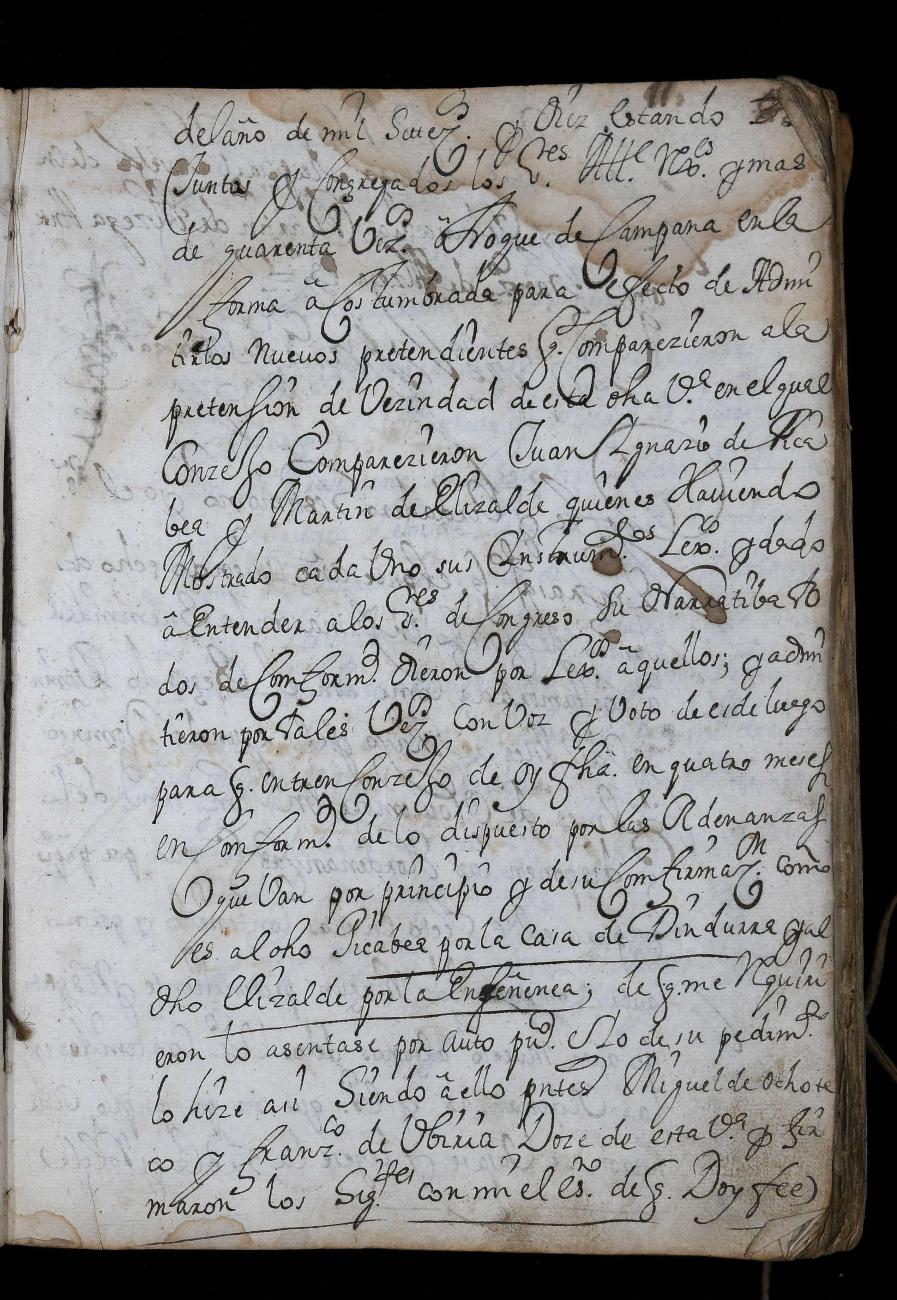 del año de mil Settez. y Diez estando
Juntos y Congregados los SS.res Alle. Rex.os y mas
de quarenta Vez.os â Toque de Campana en la
forma â Costumbrada para efecto de Admi
tir los Nuevos pretendientes q. Comparezieron a la
pretension de Vezindad de esta dha V.a en el qual
Conzejo Comparezieron Juan Ignazio de Rica
bea y Martin de Elizalde quienes Haviendo
Mostrado cada Uno sus Instrum.tos Lex.os y dado
â Entender a los S.res de Congreso su Narratiba to
dos de Comform.d dieron por Lex.os â quellos; y admi
tieron por tales Vez.os con Voz y Voto desde luego
para q. entren Conzejo de oy fha. en quatro meses
en Conform.d de lo dispuesto por las Ordenanzas
que Van por principio y de su Comfirmaz.n como
es al dho Ricabea por la casa de Dindurra y al
dho Elizalde por la Engeñenea; de q. me Requiri
eron lo asentase por auto pu.co Io de su pedim.to
lo hize asi Siendo â ello pntes Miguel de Ochote
co y Franz.co de Ubiria Doze de esta V.a y fir
maron los Sig.tes con mi el es.no de q. Doy fee